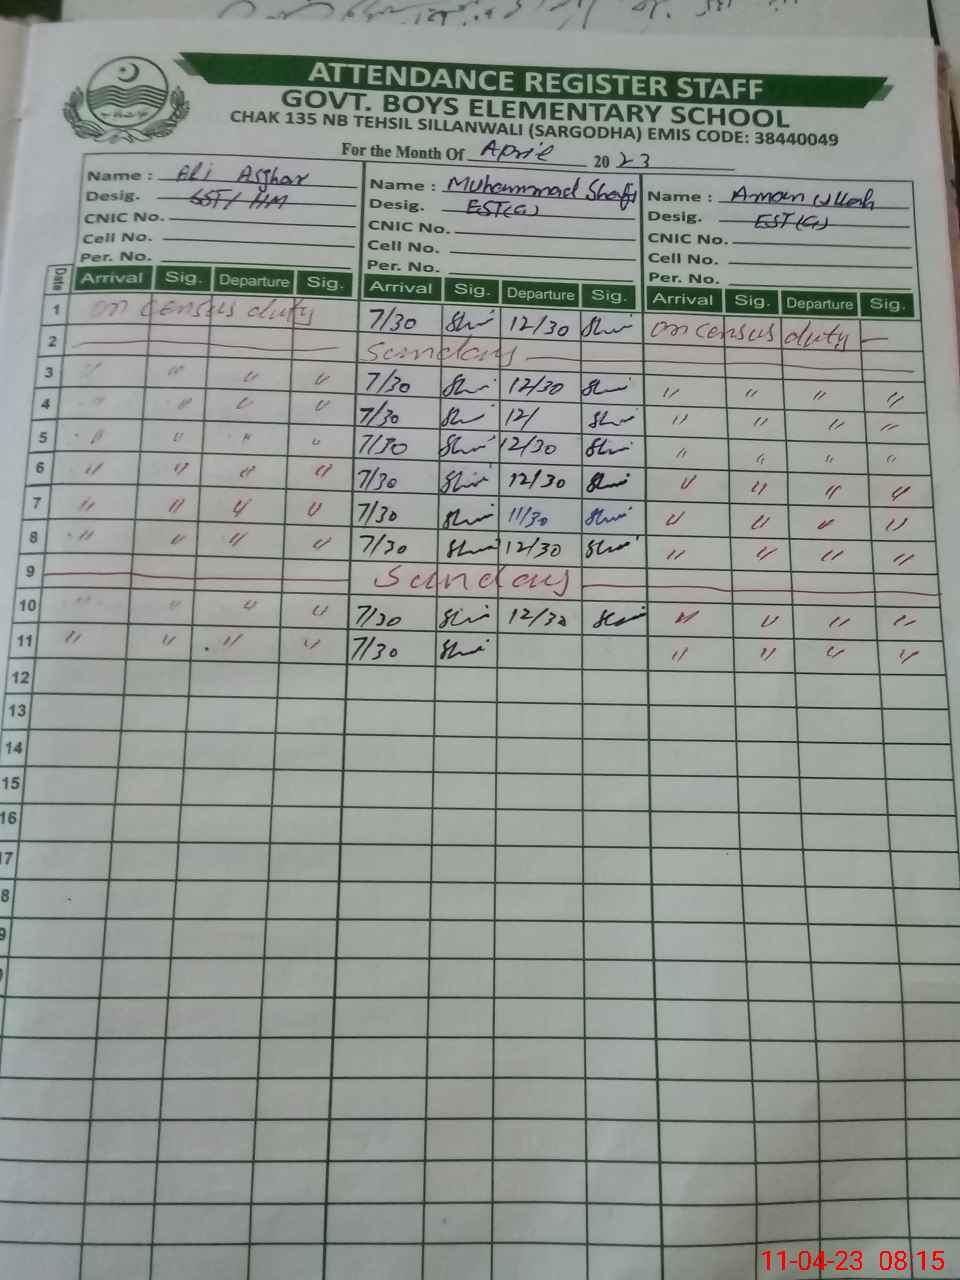 ATTENDANCE REGISTER STAFF
GOVT. BOYS ELEMENTARY SCHOOL
CHAK 135 NB TEHSIL SILLANWALI (SARGODHA) EMIS CODE: 38440049
For the Month Of April 2023
Name : Ali Asghar Name : Muhammad Shafi Name : Aman Ullah
Desig. SST/HM Desig. EST(G) Desig. EST(G)
CNIC No. CNIC No. CNIC No.
Cell No. Cell No. Cell No.
Per. No. Per. No. Per. No.
Date Arrival Sig. Departure Sig. Arrival Sig. Departure Sig. Arrival Sig. Departure Sig.
1 on census duty 7/30 12/30 on census duty
2 Sunday
3 " " " " 7/30 12/30 " " " "
4 " " " " 7/30 12/ " " " "
5 " " " " 7/30 12/30 " " " "
6 " " " " 7/30 12/30 " " " "
7 " " " " 7/30 11/30 " " " "
8 " " " " 7/30 12/30 " " " "
9 Sunday
10 " " " " 7/30 12/30 " " " "
11 " " " " 7/30 " " " "
12
13
14
15
16
17
8
9
11-04-23 08:15